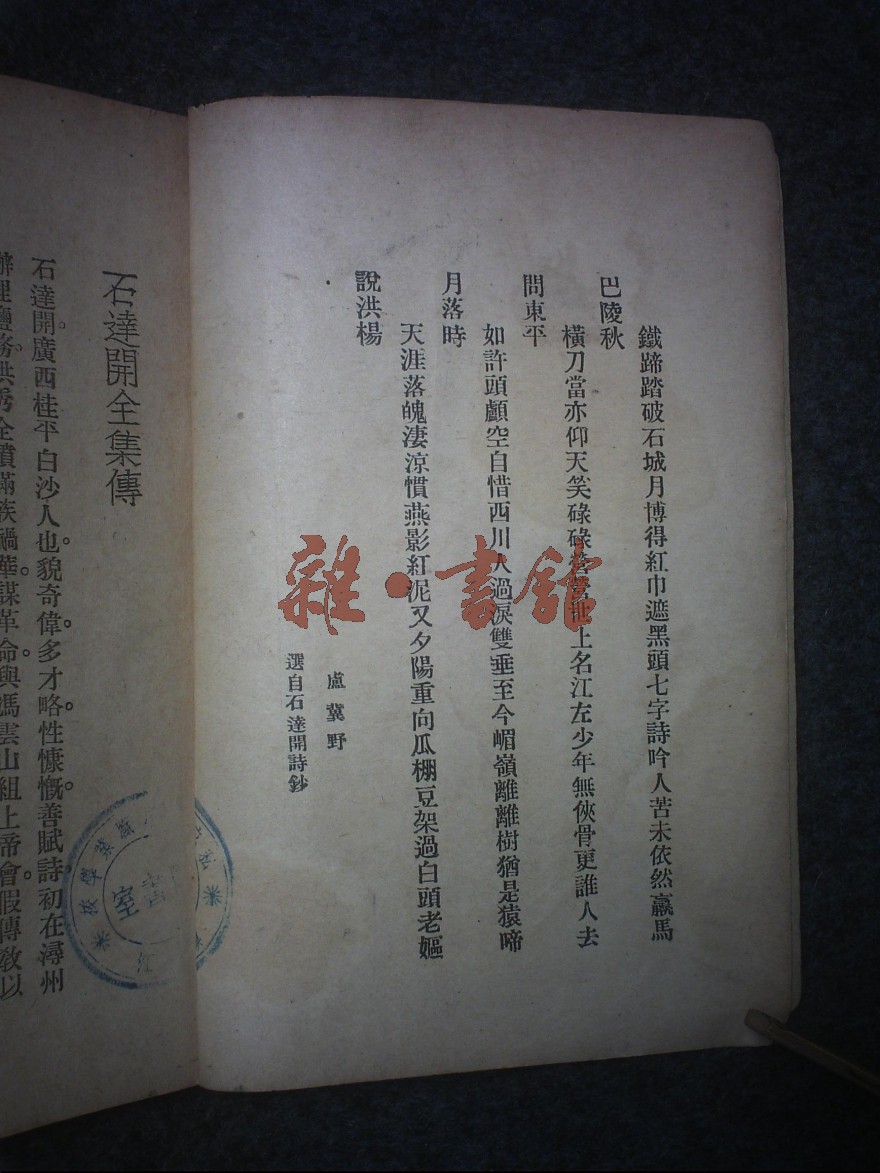 鐵蹄踏破石城月博得紅巾遮黑頭七字詩吟人苦未依然羸馬
巴陵秋
橫刀當亦仰天笑碌碌營營世上名江左少年無俠骨更誰人去
問東平
如許頭顱空自惜西川人過淚雙垂至今嵋嶺離離樹猶是猿啼
月落時
天涯落魄淒涼慣燕影紅泥又夕陽重向瓜棚豆架過白頭老嫗
說洪楊
盧冀野
選自石達開詩鈔
石達開全集傳
石達開廣西桂平白沙人也。貌奇偉。多才略。性慷慨。善賦詩。初在潯州
辦理鹽務。洪秀全憤滿族禍華。謀革命。與馮雲山組上帝會。假傳敎以
雜·書館